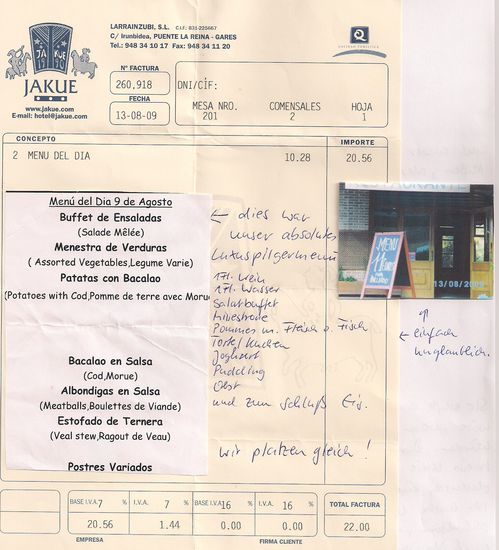 LARRAINZUBI, S.L. C.I.F.: B31-225667
C/ Irunbidea, PUENTE LA REINA - GARES
Tel.: 948 34 10 17 Fax: 948 34 11 20
JAKUE
www.jakue.com
E-mail: hotel@jakue.com
Nº FACTURA
260,918
FECHA
13-08-09
DNI/CIF:
MESA NRO. COMENSALES HOJA
201 2 1
CONCEPTO IMPORTE
2 MENU DEL DIA 10.28 20.56
Menú del Dia 9 de Agosto
Buffet de Ensaladas
(Salade Mêlée)
Menestra de Verduras
( Assorted Vegetables,Legume Varie)
Patatas con Bacalao
(Potatoes with Cod,Pomme de terre avec Moru
Bacalao en Salsa
(Cod,Morue)
Albondigas en Salsa
(Meatballs,Boulettes de Viande)
Estofado de Ternera
(Veal stew,Ragout de Veau)
Postres Variados
← dies war
unser absolutes
Luxuspilgermenü
1 Fl. Wein
1 Fl. Wasser
Salatbuffet
Minestrone
Pommes m. Fleisch o. Fisch
Törtel Kuchen
Joghurt
Pudding
Obst
und zum Schluß Eis.
wir platzen gleich!
MENU
11
13/08/2009
← einfach
unglaublich.
BASE I.V.A. 7 % I.V.A. 7 % BASE I.V.A. 16 % I.V.A. 16 % TOTAL FACTURA
20.56 1.44 0.00 0.00 22.00
EMPRESA FIRMA CLIENTE